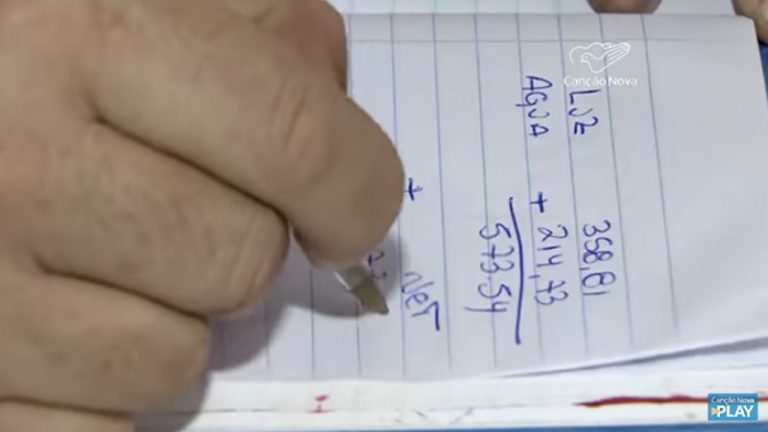 Canção Nova
LUZ 358,81
AGUA + 214,73
573.54
+
Canção Nova
PLAY